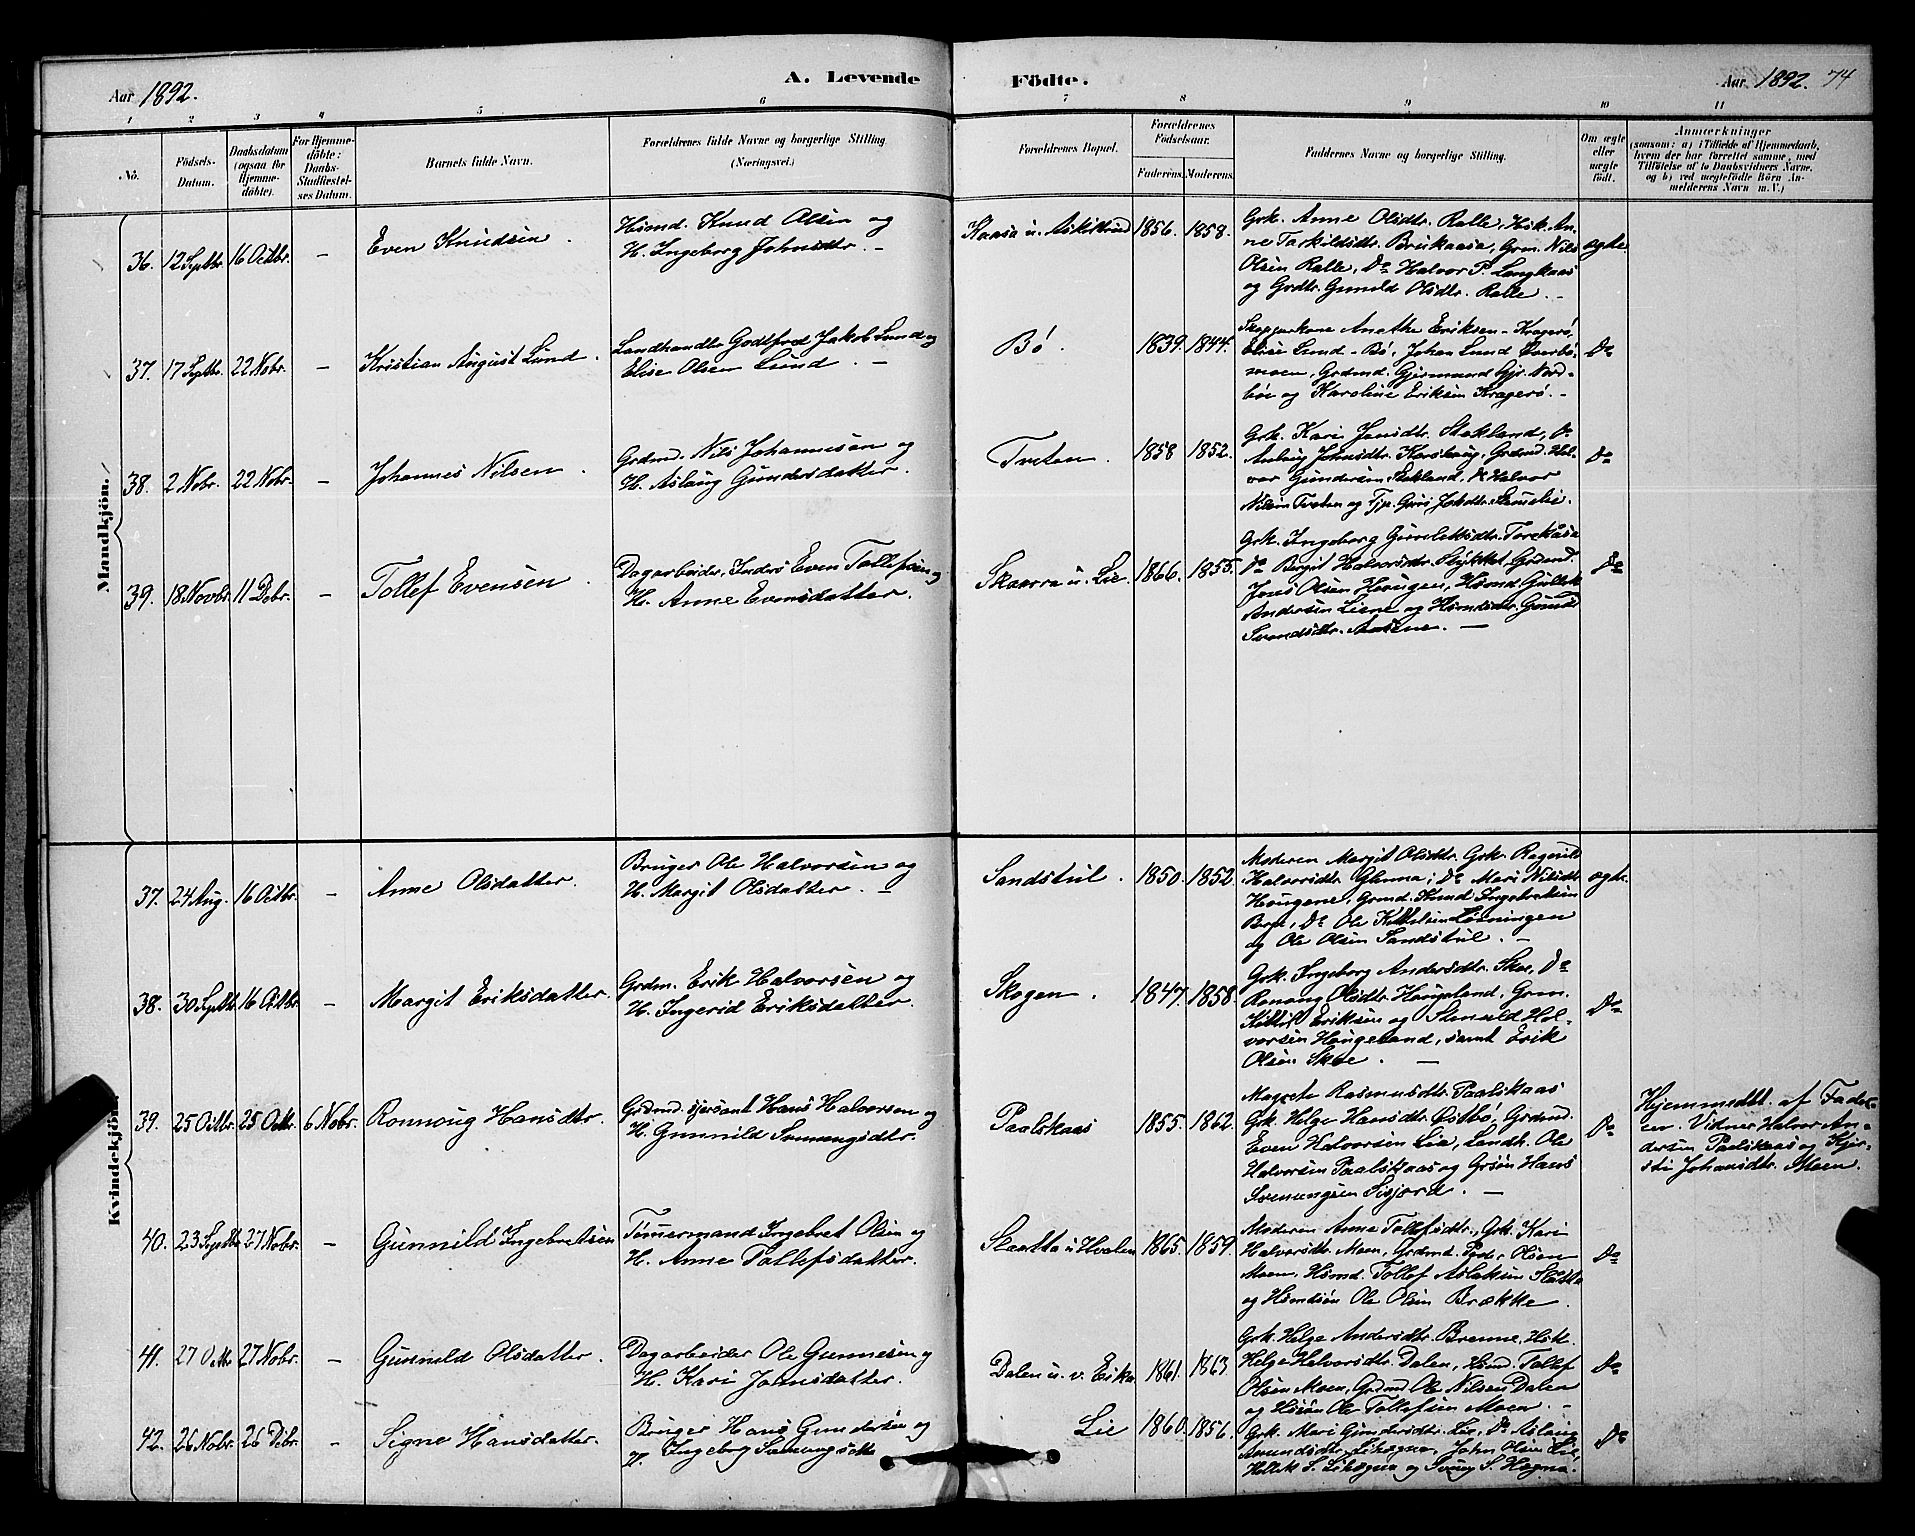 Aar 1892.
A. Levende
Födte.
Aar 1892. 74
1 2 3 4 5 6 7 8 9 10 11
No.
Födsels-
Datum.
Daabsdatum
(ogsaa for
Hjemme-
döbte).
For Hjemme-
döbte:
Daabs-
Stadfæstel-
ses Datum.
Barnets fulde Navn.
Forældrenes fulde Navne og borgerlige Stilling
(Næringsvei.)
Forældrenes Bopæl.
Forældrenes
Födselsaar.
Faderens. Moderens.
Faddernes Navne og borgerlige Stilling.
Om ægte
eller
uægte
födt.
Anmærkninger
(saasom: a) i Tilfælde af Hjemmedaab,
hvem der har forrettet samme, med
Tilföielse af to Daabsvidners Navne,
og b) ved uægtefödte Börn An-
melderens Navn m. V.)
Mandkjön.
36. 12 Septbr. 16 Octbr. – Even Knudsen.
Hsmd. Knud Olsen og
H. Ingeborg Johnsdtr. –
Kaasa u. 1856. 1858.
Grk. Anne Olsdtr. Ralle, Hsk. An-
ne Tarkildsdtr. Brukaasa, Grm. Nils
Olsen Ralle, Do Halvor P. Langkaas
og Grdtr. Gunild Olsdtr. Ralle. –
ægte.
37. 17 Septbr. 22 Nobr. – Kristian August Lund.
Landhandler Godtfred Jakob Lund og
Elise Olsen Lund. –
Bö. 1839. 1844.
Skipperkone Anethe Eriksen – Kragerö,
Elise Lund – Bö, Johan Lund Overbö-
moen, Grdmd. Gjermund Gjr. Nord-
böe og Karoline Eriksen Kragerö. –
Do
38. 2 Nobr. 22 Nobr. – Johannes Nilsen.
Grdmd. Nils Johannesen og
H. Aslaug Gundersdatter.
Tveten. 1858 1852.
Grk. Kari Jensdtr. Stokland, Do
Aslaug Johnsdtr. Grdmd. Hal-
vor Gundersen Stokland, Do Halvor
Nilsen Tveten og Tjp. Guri Johsdtr.
Do
39. 18 Novbr. 11 Debr. – Tollef Evensen.
Dagarbeider, Inders Even Tollefsen og
H. Anne Evensdatter.
Skaarra u. Lie. 1866. 1855.
Grk. Ingeborg Torekaasa
Do Birgit Halvorsdtr. Stykket, Grdmd.
Jens Olsen Haugen, Hsmd Gullek
Andersen Liene og Hsmdsdtr. Gunild
Svendsdtr. Aasene. –
Do
Kvindekjön.
37. 24 Aug. 16 Octbr. – Anne Olsdatter.
Bruger Ole Halvorsen og
H. Margit Olsdatter. –
Sandstul. 1850. 1852.
Moderen Margit Olsdtr. Grk. Ragnild
Halvorsdtr. Glenna, Do Mari Nilsdtr.
Haugene, Grmd. Knud Ingebretsen
Berge, Do Ole Kittelsen
og Ole Olsen Sandstul. –
ægte.
38. 30 Septbr. 16 Octbr. – Margit Eriksdatter.
Grdm. Erik Halvorsen og
H. Ingerid Eriksdatter.
Skogen. 1847. 1858.
Grk. Ingeborg Andersdtr. Skoe, Do
Ronaug Olsdtr. Haugeland, Grm.
Kittil Eriksen og Hal-
vorsen Haugeland, samt Erik
Olsen Skoe. –
Do
39. 25 Octbr. 25 Octbr. 6 Nobr. Ronnoug Hansdtr.
Grdmd. sjersant Hans Halvorsen og
H. Gunnild Svenungsdtr.
Paalskaas 1855. 1862.
Rasmusdtr. Paalskaas
Grk. Helge Hansdtr. Østbö, Grdmd.
Even Halvorsen Lia, Landh. Ole
Halvorsen Paalskaas og Grsön Hans
Svenungsen Sisjord. –
Do
Hjemmedöbt af Fader-
en. Vidner Halvor An-
dersen Paalskaas og Kjer-
sti Johansdtr. Moen.
40. 23 Septbr. 27 Nobr. – Gunnild Ingebretsen
Tömermand Ingebret Olsen og
H. Anne Tollefsdatter.
Slaatta u. Hvalen 1865. 1859.
Moderen Anne Tollefsdtr, Grk. Kari
Halvorsdtr. Moen, Grdmd. Peder Olsen
Moen, Hsmd. Tollef Aslaksen Slaatta
og Hsmdsön Ole Olsen Brække.
Do
41. 27 Octbr 27 Nobr. – Gunnild Olsdatter.
Dagarbeider Ole Gunnesen og
H. Kari Johnsdatter.
Dalen u. v. Eika 1861. 1863
Grk. Helge Andersdtr. Brenne, Hsk.
Helge Halvorsdtr. Dalen, Hsmd. Tollef
Olsen Moen, Grdmd Ole Nilsen Dalen
og Hssön Ole Tollefsen Moen. –
Do
42. 26 Nobr. 26 Debr. – Signe Hansdatter.
Bruger Hans Gundersen og
H. Ingeborg
Lie 1860. 1856.
Grk. Mari Gundersdtr. Lie, Do Aslaug
John Olsen Lie,
og S. Hegna.
Do